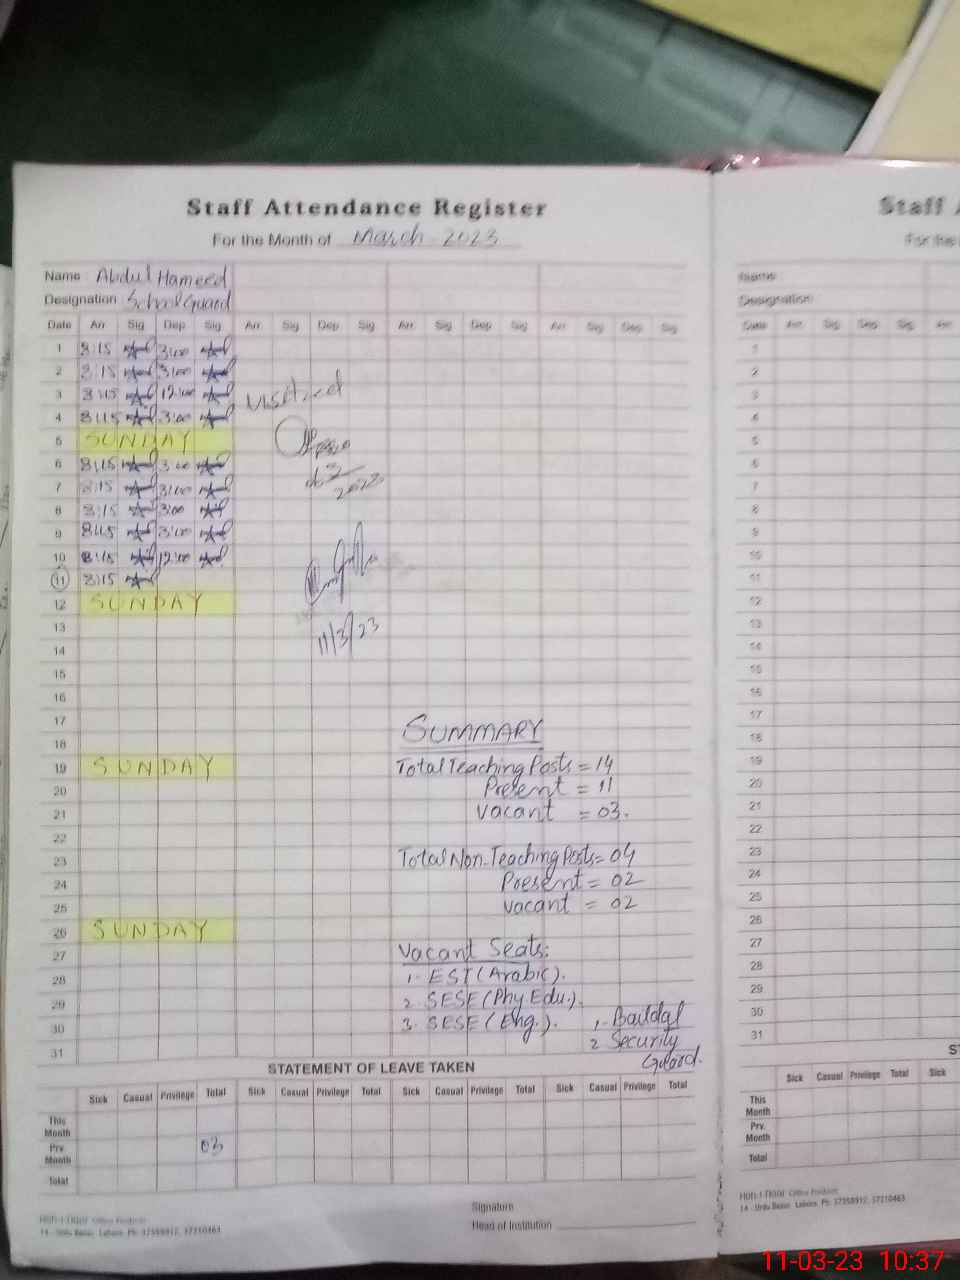 Staff Attendance Register
For the Month of March 2023
Name Abdul Hameed
Designation School Guard
Date Arr Sig Dep Sig Arr Sig Dep Sig Arr Sig Dep Sig Arr Sig Dep Sig
1 8:15 3:00
2 8:15 3:00
3 8:15 12:00
4 8:15 3:00
Visited
5 SUNDAY
6 8:15 3:00
7 8:15 3:00
2023
8 8:15 3:00
9 8:15 3:00
10 8:15 12:00
11 8:15
12 SUNDAY
13
11/3/23
14
15
16
17
SUMMARY
18
19 SUNDAY Total Teaching Posts = 14
20 Present = 11
21 Vacant = 03.
22
23 Total Non-Teaching Posts = 04
24 Present = 02
25 Vacant = 02
26 SUNDAY
27 Vacant Seats:
28 1. EST (Arabic).
29 2. SESE (Phy Edu.).
30 3. SESE (Eng.). 1. Baildal
31 2 Security
Guard.
STATEMENT OF LEAVE TAKEN
Sick Casual Privilege Total Sick Casual Privilege Total Sick Casual Privilege Total Sick Casual Privilege Total
This Month
Prv. Month 03
Total
Signature
Head of Institution
Office Products
14 - Urdu Bazar Lahore. Ph: 37358912, 37210463
Staff
For the
Name
Designation
Date Arr Sig Dep Sig Arr
1
2
3
4
5
6
7
8
9
10
11
12
13
14
15
16
17
18
19
20
21
22
23
24
25
26
27
28
29
30
31
Sick Casual Privilege Total Sick
This Month
Prv. Month
Total
Office Products
14 - Urdu Bazar Lahore. Ph: 37358912, 37210463
11-03-23 10:37